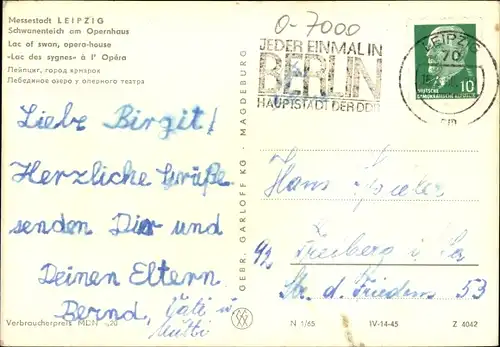 Messestadt LEIPZIG
Schwanenteich am Opernhaus
Lac of swan, opera-house
«Lac des sygnes» à l' Opéra
Лейпциг, город ярмарок
Лебединое озеро у оперного театра
0-7000
JEDER EINMAL IN
BERLIN
HAUPTSTADT DER DDR
LEIPZIG
70
DEUTSCHE
DEMOKRATISCHE REPUBLIK
10
Liebe Birgit!
Herzliche Grüße
senden Dir und
Deinen Eltern
Bernd, Vati u.
Mutti
GEBR. GARLOFF KG · MAGDEBURG
Hans
92 Freiberg i. Sa
Str. d. Friedens 53
Verbraucherpreis MDN 0,20
N 1/65 IV-14-45 Z 4042